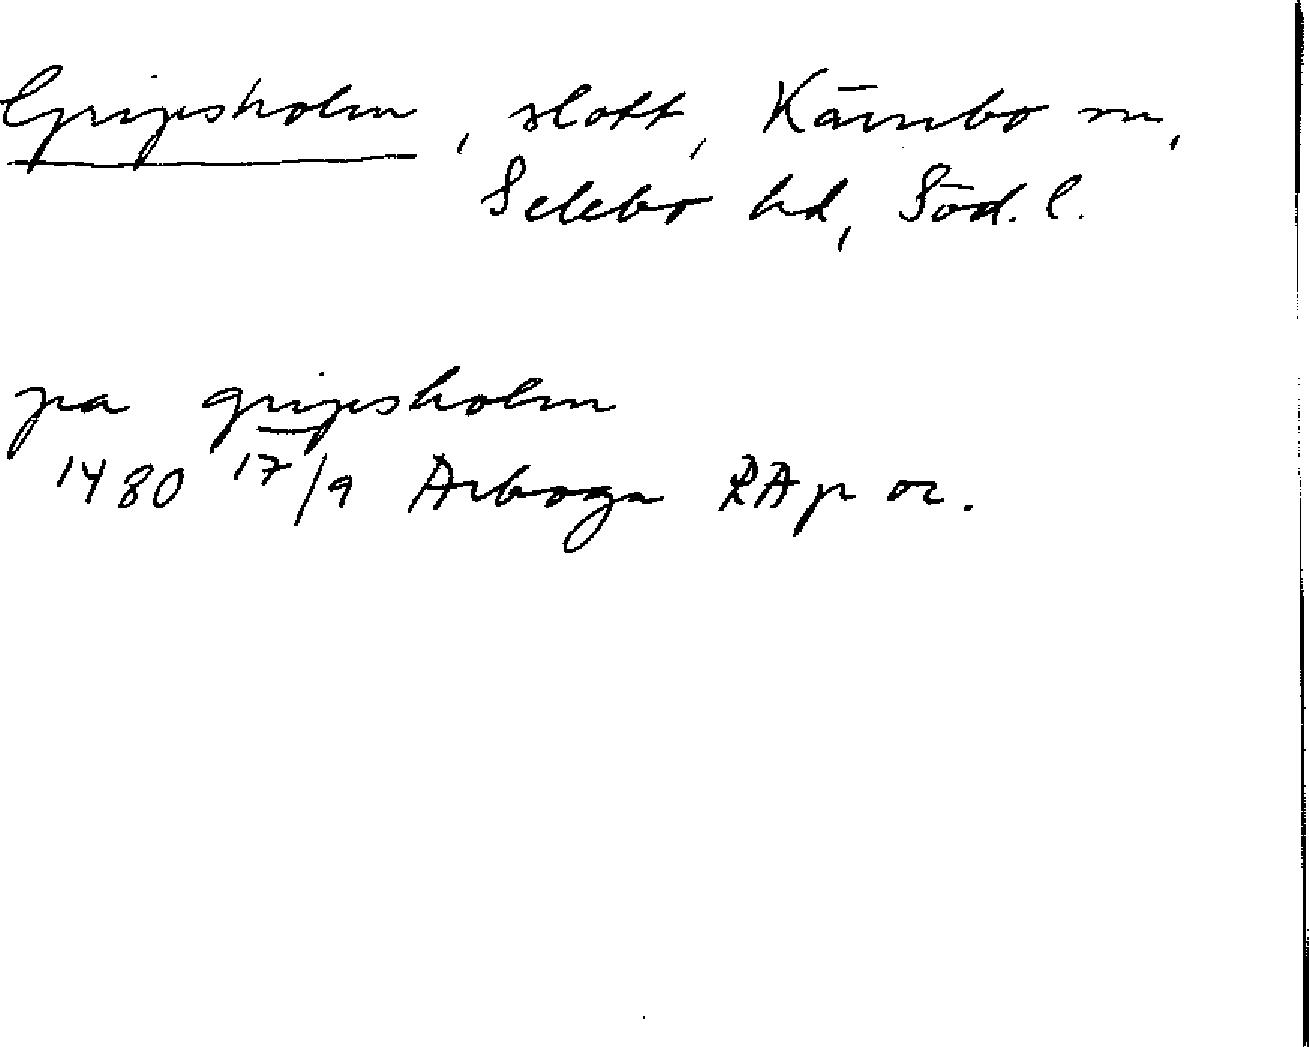 Gripsholm, slott, Kärnbo sn,
Selebo hd, Söd. l.
pa gripsholm
1480 17/9 Arboga RAp or.